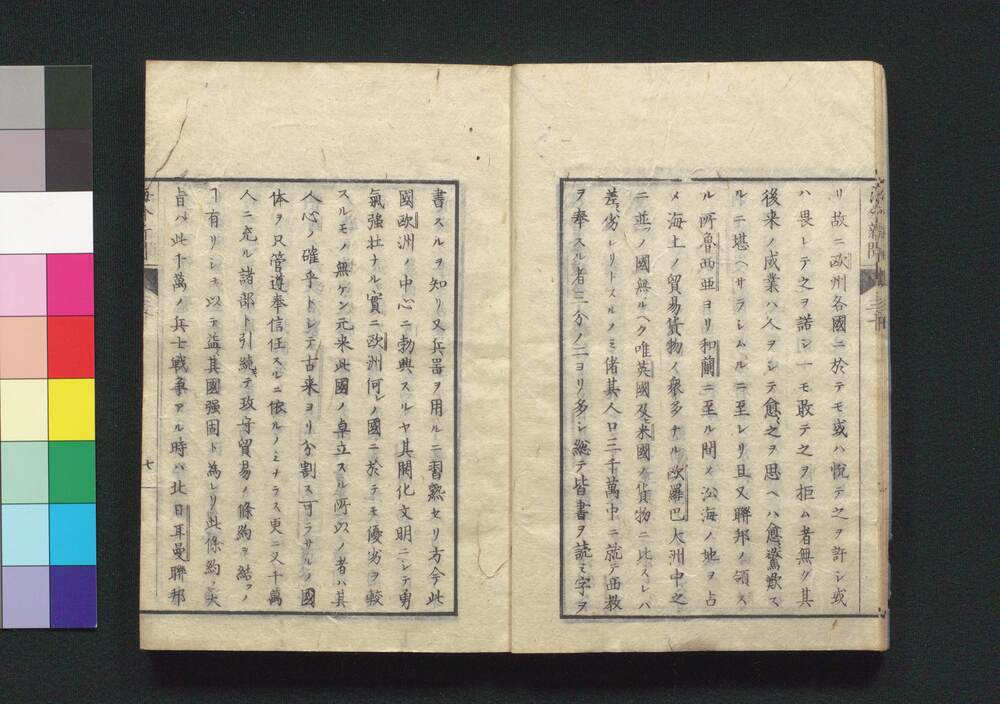 リ故ニ欧州各國ニ於テモ或ハ悦テ之ヲ許シ或
ハ畏レテ之ヲ諾シ一モ敢テ之ヲ拒ム者無ク其
後来ノ成業ハ人ヲシテ愈之ヲ思ヘハ愈驚歎ス
ルニ堪ヘサラシムルニ至レリ且又聯邦ノ領ス
ル所魯西亜ヨリ和蘭ニ至ル間ノ沿海ノ地ヲ占
メ海上ノ貿易貨物ノ衆多ナル欧羅巴大洲中之
ニ並フノ國無ルヘク唯英國及米國ノ貨物ニ比スレハ
差劣レリトスルノミ偖其人口三千萬中ニ就テ西教
ヲ奉スル者三分ノ二ヨリ多シ総テ皆書ヲ読ミ字ヲ
書スルヲ知リ又兵噐ヲ用ルニ習熟セリ方今此
國欧洲ノ中心ニ勃興スルヤ其開化文明ニシテ勇
氣強壮ナル實ニ欧洲何レノ國ニ於テモ優劣ヲ較
スルモノ無ケン元来此國ノ卓立スル所以ノ者ハ其
人心ノ確乎トシテ古来ヨリ分割ス可ラサルノ國
体ヲ只管遵奉信任スルニ依ルノミナラス更ニ又千萬
人ニ充ル諸部ト引続キテ攻守貿易ノ條約ヲ結フノ
ヿ有リシヲ以テ益其國强固ト為レリ此條約ノ大
旨ハ此千萬ノ兵士戦争アル時ハ北日耳曼聯邦
七